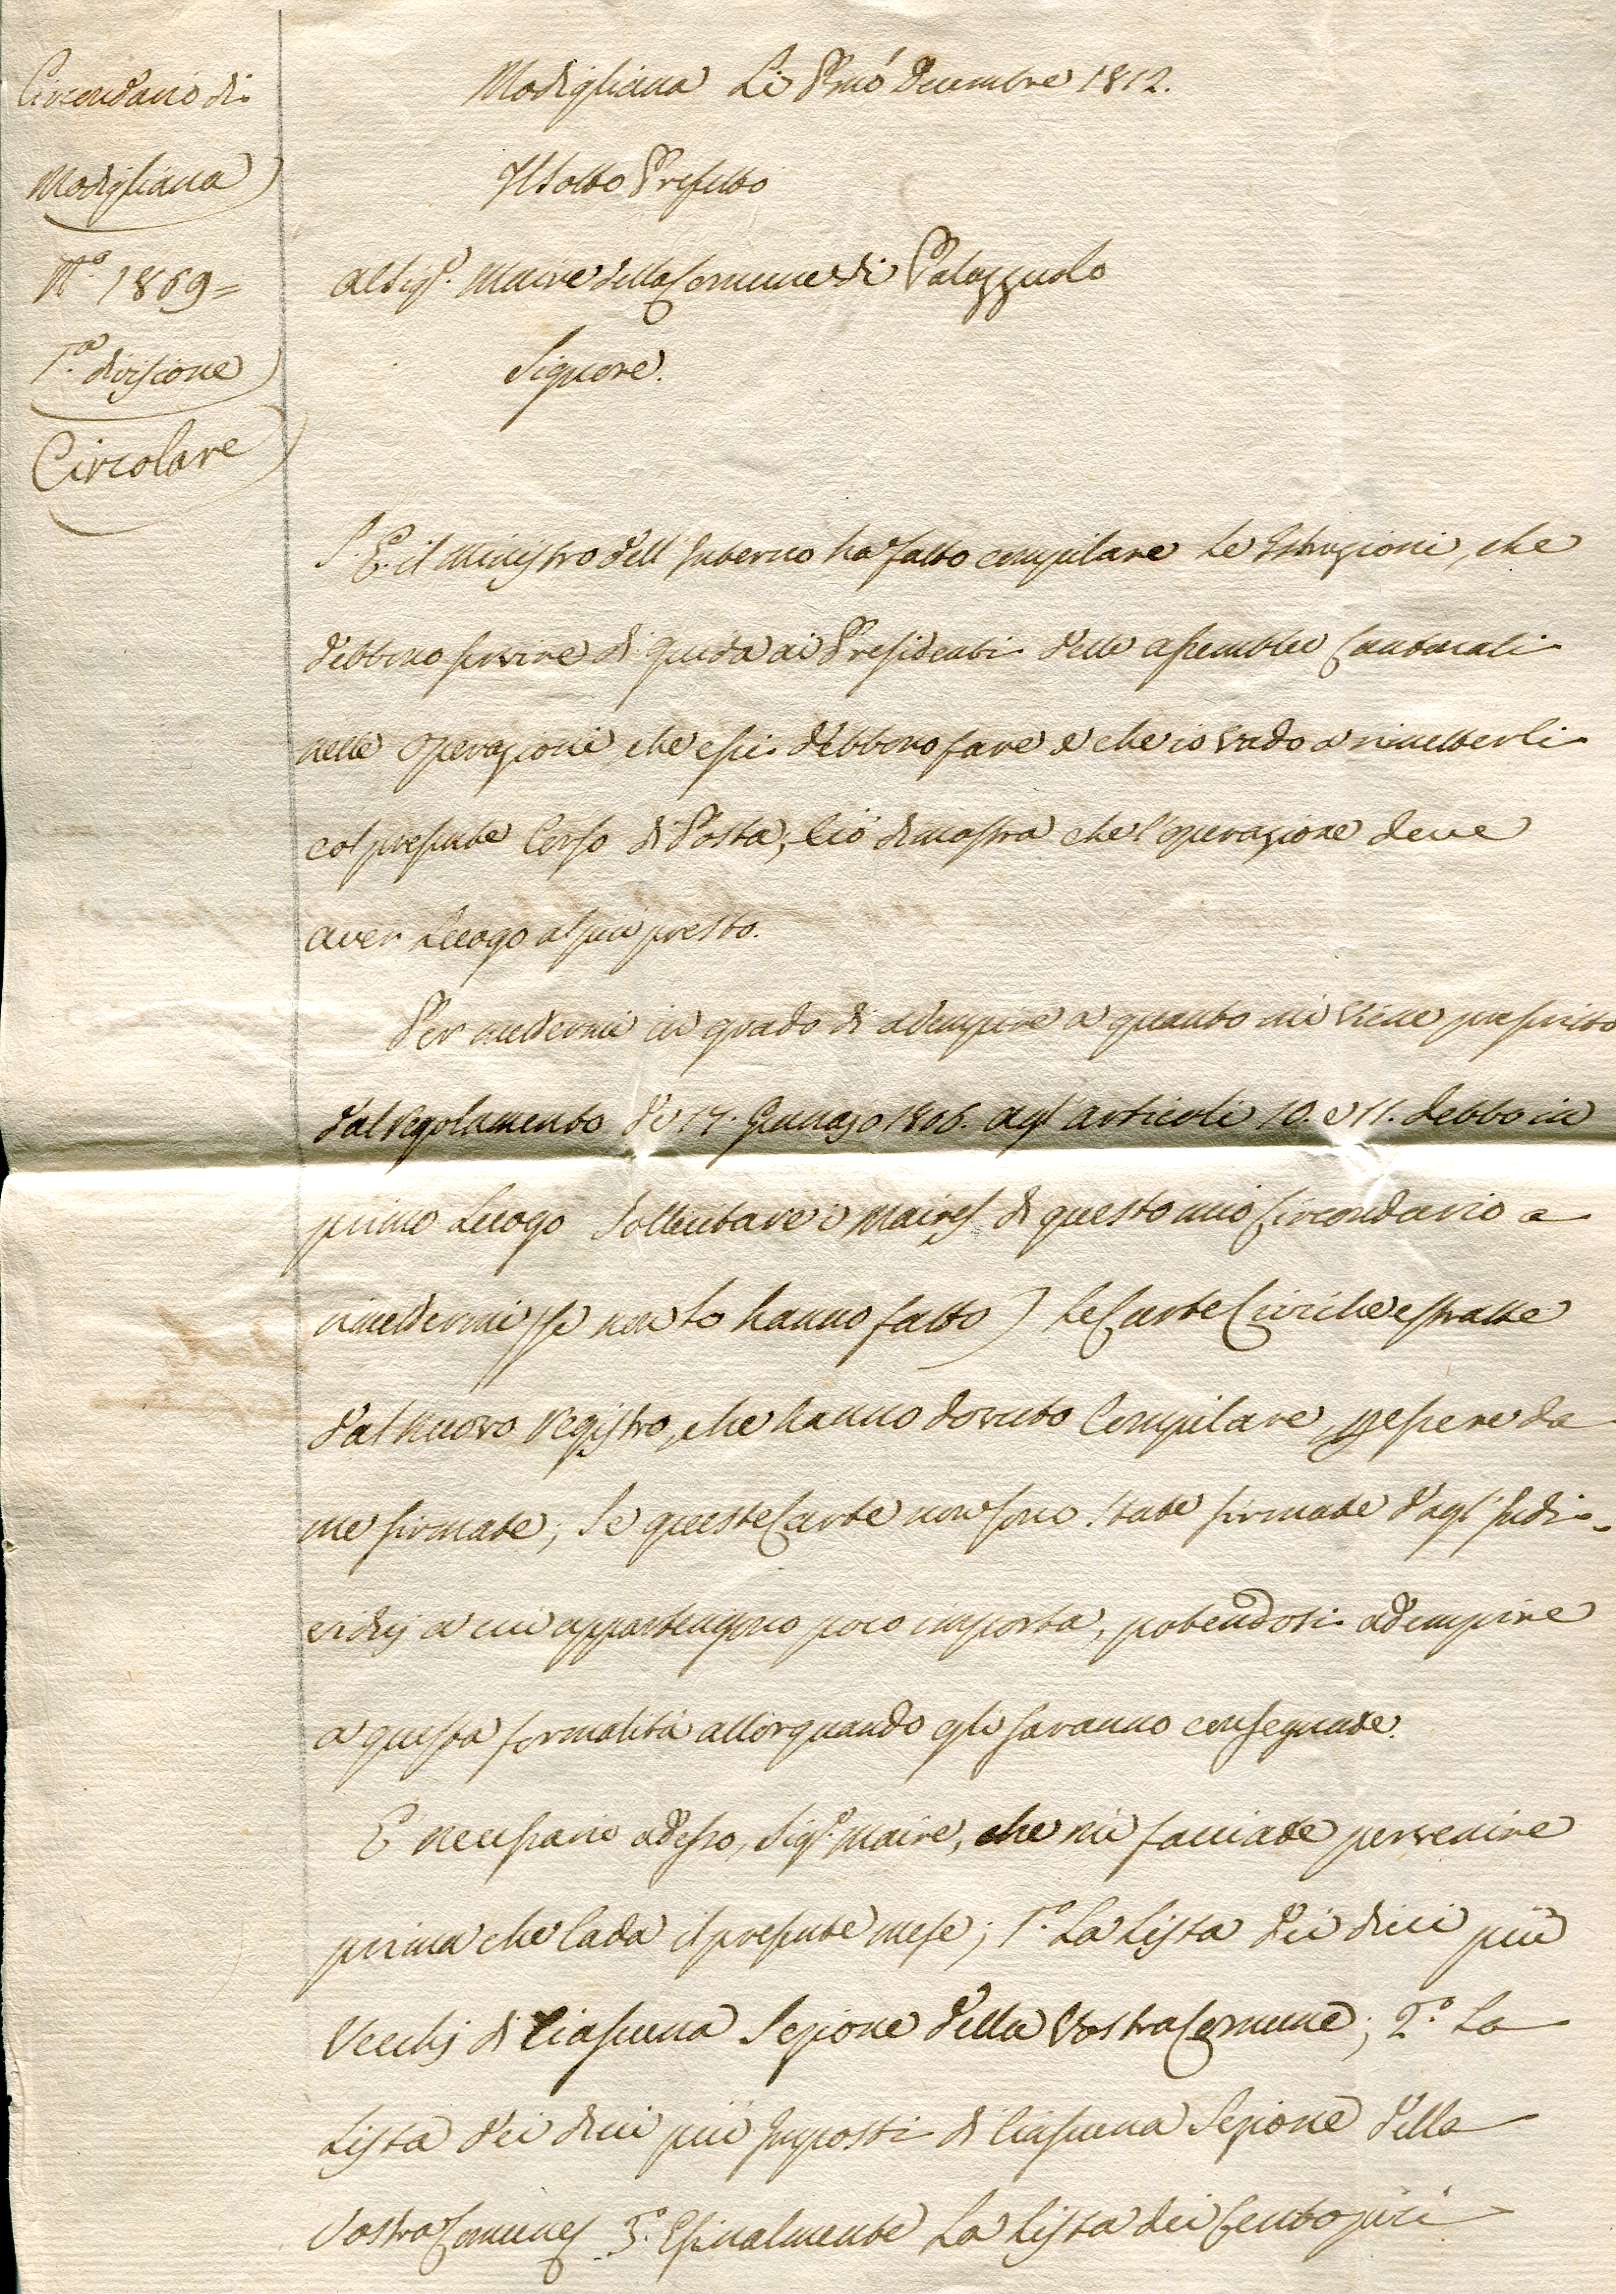 Circondario di
Modigliana
N.º 1869=
1.ª divisione
Circolare
Modigliana Li Pmo Decembre 1812.
Il Sotto Prefetto
Al Sigr. Maire della Comune di Palazzuolo
Signore.
S. E. il Ministro dell'Interno ha fatto compilare le Istruzioni, che
debbono servire di guida ai Presidenti delle assemblee Cantonali
nelle operazioni che essi debbono fare e che io vado a rimetterli
col presente Corso di Posta; Ciò dimostra che l'operazione deve
aver Luogo al più presto.
Per mettermi in grado di adempire a quanto mi viene prescritto
dal Regolamento de 17. Gennajo 1806. agl'articoli 10. e 11. debbo in
primo Luogo Sollecitare i Maires di questo mio Circondario a
rimettermi (se non lo hanno fatto) le Carte Civiche estratte
dal nuovo Registro, che hanno dovuto Compilare, per essere da
me firmate; Se queste Carte non sono state firmate dagl'Indi-
vidui a cui appartengono poco importa, potendosi adempire
a questa formalità allorquando gli saranno consegnate.
E necessario adesso, Sigr. Maire, che mi facciate pervenire
prima che Cada il presente mese; 1.º La Lista dei dieci più
Vecchj di Ciascuna Sezione della Vostra Comune; 2.º La
Lista dei dieci più Imposti di Ciascuna Sezione della
Vostra Comune 3.º E finalmente La Lista dei Cento più